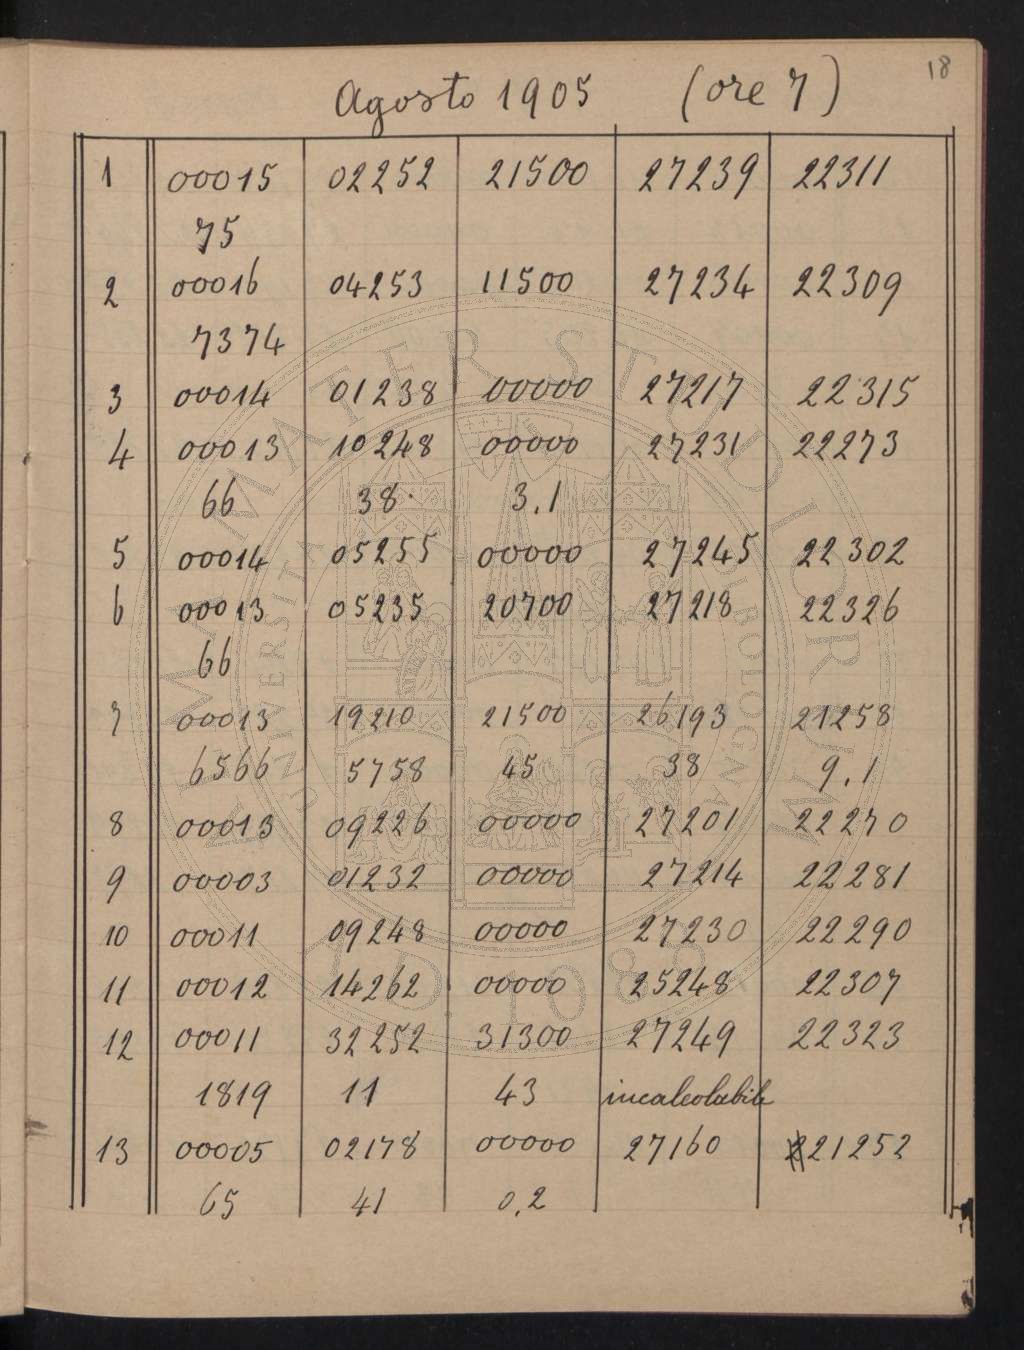 18
Agosto 1905 (ore 7)
1 00015 02252 21500 27239 22311
75
2 00016 04253 11500 27234 22309
7374
3 00014 01238 00000 27217 22315
4 00013 10248 00000 27231 22273
66 38 3.1
5 00014 05255 00000 27245 22302
6 00013 05235 20700 27218 22326
66
7 00013 19210 21500 26193 21258
6566 5758 45 38 9.1
8 00013 09226 00000 27201 22270
9 00003 01232 00000 27214 22281
10 00011 09248 00000 27230 22290
11 00012 14262 00000 25248 22307
12 00011 32252 31300 27249 22323
1819 11 43 incalcolabile
13 00005 02178 00000 27160 21252
65 41 0.2
ALMA MATER STUDIORUM
UNIVERSITÀ DI BOLOGNA
A.D. 1088